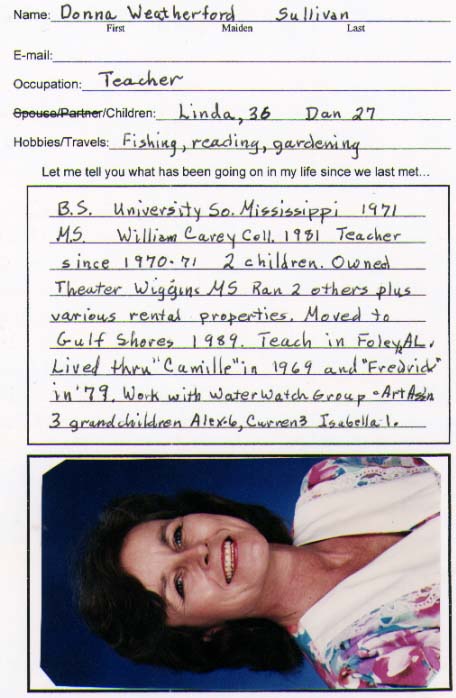 Name: Donna Weatherford Sullivan
First Maiden Last
E-mail:
Occupation: Teacher
Spouse/Partner/Children: Linda, 36 Dan 27
Hobbies/Travels: Fishing, reading, gardening
Let me tell you what has been going on in my life since we last met...
B.S. University So. Mississippi 1971
M.S. William Carey Coll. 1981 Teacher
since 1970-71 2 children. Owned
Theater Wiggins MS Ran 2 others plus
various rental properties. Moved to
Gulf Shores 1989. Teach in Foley, AL.
Lived thru "Camille" in 1969 and "Fredrick"
in '79. Work with Water Watch Group - Art Assn
3 grandchildren Alex-6, Curren 3 Isabella-1.